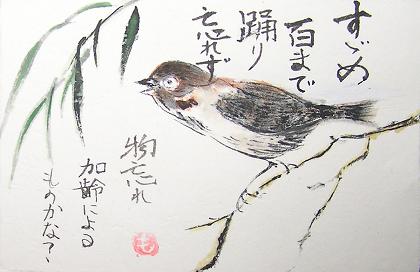 すゞめ
百まで
踊り
忘れず
物忘れ
加齢による
ものかな？
も